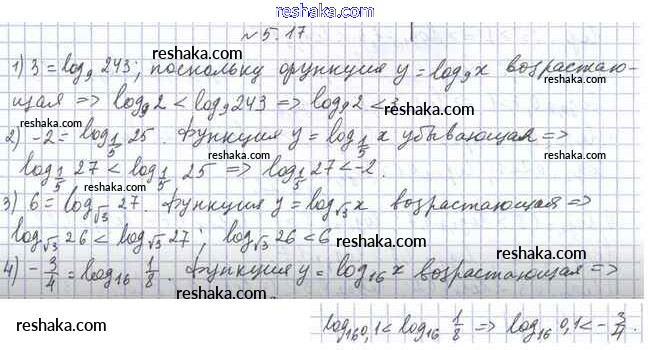 reshaka.ru
№5.17
reshaka.ru reshaka.ru
1) 3 = log₉ 243; поскольку функция y = log₉x возрастаю-
щая => log₉2 < log₉243 => log₉2 < 3.
reshaka.ru reshaka.ru
2) -2 = log_{1/5} 25. Функция y = log_{1/5} x убывающая =>
log_{1/5} 27 < log_{1/5} 25 => log_{1/5} 27 < -2.
reshaka.ru reshaka.ru
3) 6 = log_{√3} 27. Функция y = log_{√3} x возрастающая =>
log_{√3} 26 < log_{√3} 27; log_{√3} 26 < 6
reshaka.ru reshaka.ru
4) -3/4 = log₁₆ 1/8. Функция y = log₁₆ x возрастающая =>
reshaka.ru reshaka.ru
log₁₆ 0,1 < log₁₆ 1/8 => log₁₆ 0,1 < -3/4.
reshaka.ru